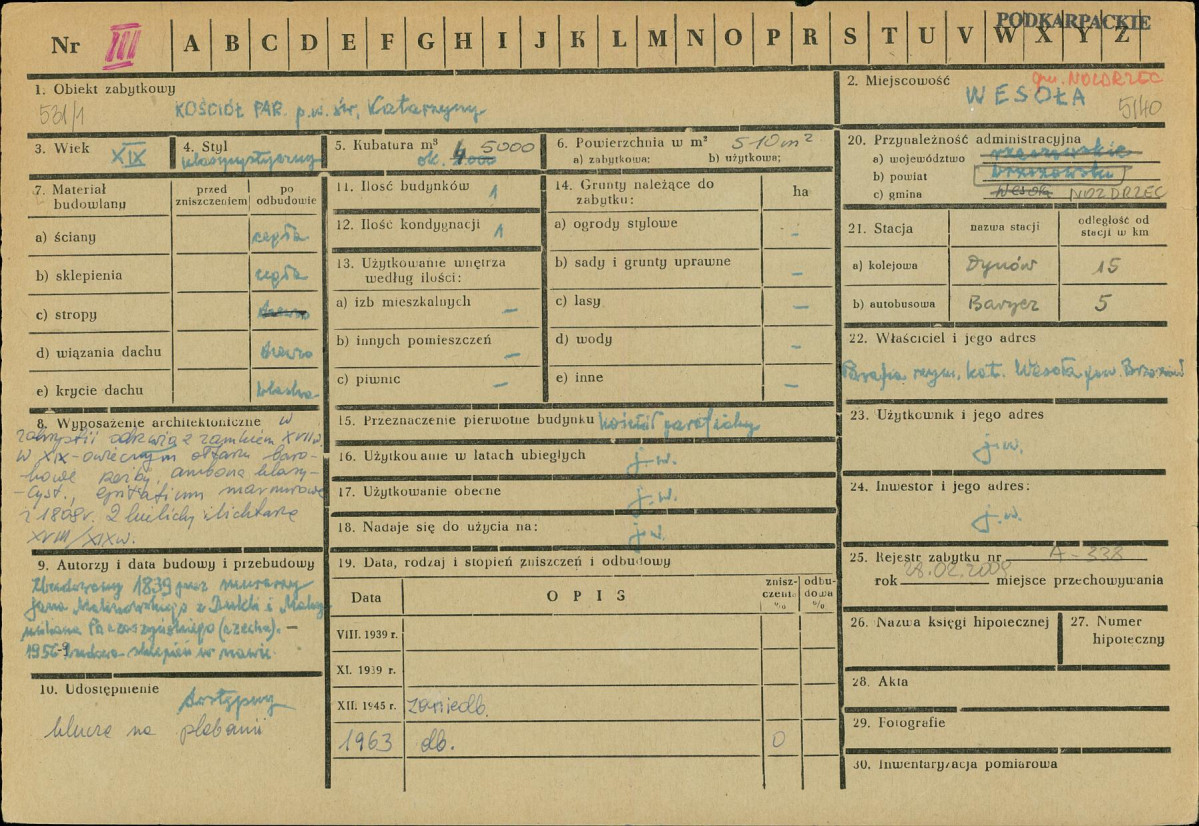 PODKARPACKIE
Nr III A B C D E F G H I J K L M N O P R S T U V W X Y Z
1. Obiekt zabytkowy
531/1
KOŚCIÓŁ PAR. p.w. św. Katarzyny
2. Miejscowość
gm. NOZDRZEC
WESOŁA
5140
3. Wiek
XIX
4. Styl
klasycystyczny
5. Kubatura m³
5000
ok.
6. Powierzchnia w m² 510 m²
a) zabytkowa: b) użytkowa:
20. Przynależność administracyjna
a) województwo rzeszowskie
b) powiat brzozowski
c) gmina Wesoła NOZDRZEC
7. Materiał budowlany
przed zniszczeniem
po odbudowie
a) ściany cegła
b) sklepienia cegła
c) stropy drewno
d) wiązania dachu drewno
e) krycie dachu blacha
11. Ilość budynków 1
12. Ilość kondygnacji 1
13. Użytkowanie wnętrza według ilości:
a) izb mieszkalnych –
b) innych pomieszczeń –
c) piwnic –
14. Grunty należące do zabytku:
ha
a) ogrody stylowe –
b) sady i grunty uprawne –
c) lasy –
d) wody –
e) inne –
21. Stacja
nazwa stacji
odległość od stacji w km
a) kolejowa Dynów 15
b) autobusowa Barycz 5
22. Właściciel i jego adres
Parafia rzym. kat. Wesoła pow. Brzozów
8. Wyposażenie architektoniczne w
zakrystii odrzwia z zamkiem XVIII w.
w XIX-owiecznym ołtarzu baro-
kowe rzeźby, ambona klasy-
cyst., epitafium marmurowe
z 1808 r. 2 kielichy i lichtarze
XVIII/XIX w.
15. Przeznaczenie pierwotne budynku kościół parafialny
16. Użytkowanie w latach ubiegłych j.w.
17. Użytkowanie obecne j.w.
18. Nadaje się do użycia na: j.w.
23. Użytkownik i jego adres
j.w.
24. Inwestor i jego adres:
j.w.
9. Autorzy i data budowy i przebudowy
Zbudowany 1839 przez murarzy
Jana Malinowskiego z Dukli i
(czecha). –
1956-9 budowa sklepień w nawie
10. Udostępnienie
dostępny
klucze na plebanii
19. Data, rodzaj i stopień zniszczeń i odbudowy
Data
OPIS
zniszczenia %
odbudowa %
VIII. 1939 r.
XI. 1939 r.
XII. 1945 r. zaniedb.
1963 db. 0
25. Rejestr zabytku nr A-338
28.02.2009
rok miejsce przechowywania
26. Nazwa księgi hipotecznej
27. Numer hipoteczny
28. Akta
29. Fotografie
30. Inwentaryzacja pomiarowa